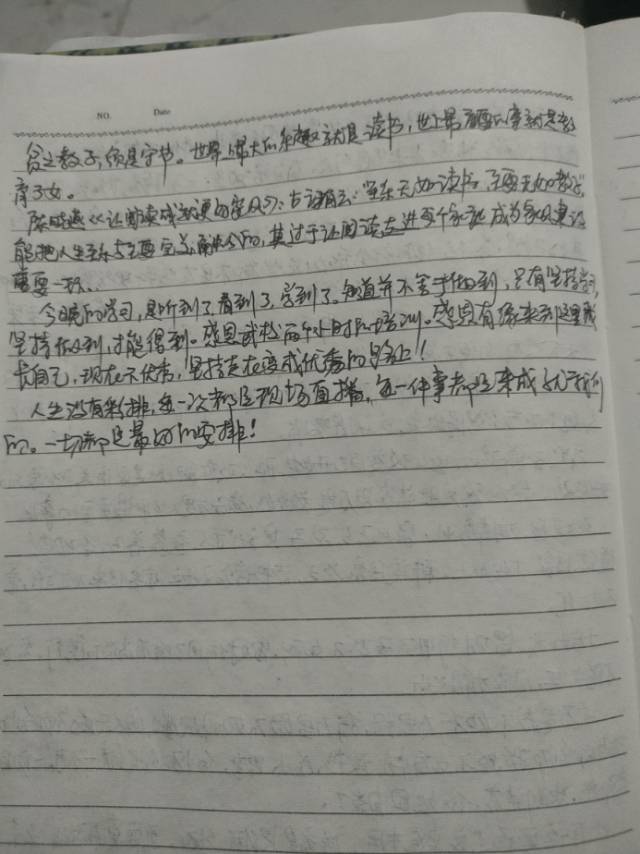 NO. Date
贫之教子,须是守节。世界上伟大的乐趣就是读书,世上最重要的事就是教
育子女。
陈晓燕《让阅读成就更的家风》:古语云:"至乐无如读书,至要无如教子",
能把人生至乐与至要完美的,莫过于让阅读走进每个家庭,成为家风建设
重要一环。
今晚的学习,是听到了,看到了,学到了。知道并不等于做到,只有坚持学习,
坚持做到,才能得到。感恩两个小时的培训。感恩有缘来到这里成
长自己,现在不优秀,坚持走在变成优秀的路上!!
人生没有彩排,每一次都是现场直播,每一件事都是来成就我们
的。一切都是最好的安排!